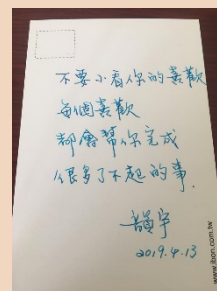 不要小看你的喜歡
每個喜歡
都會幫你完成
很多了不起的事.
2019.4.13
www.ibon.com.tw